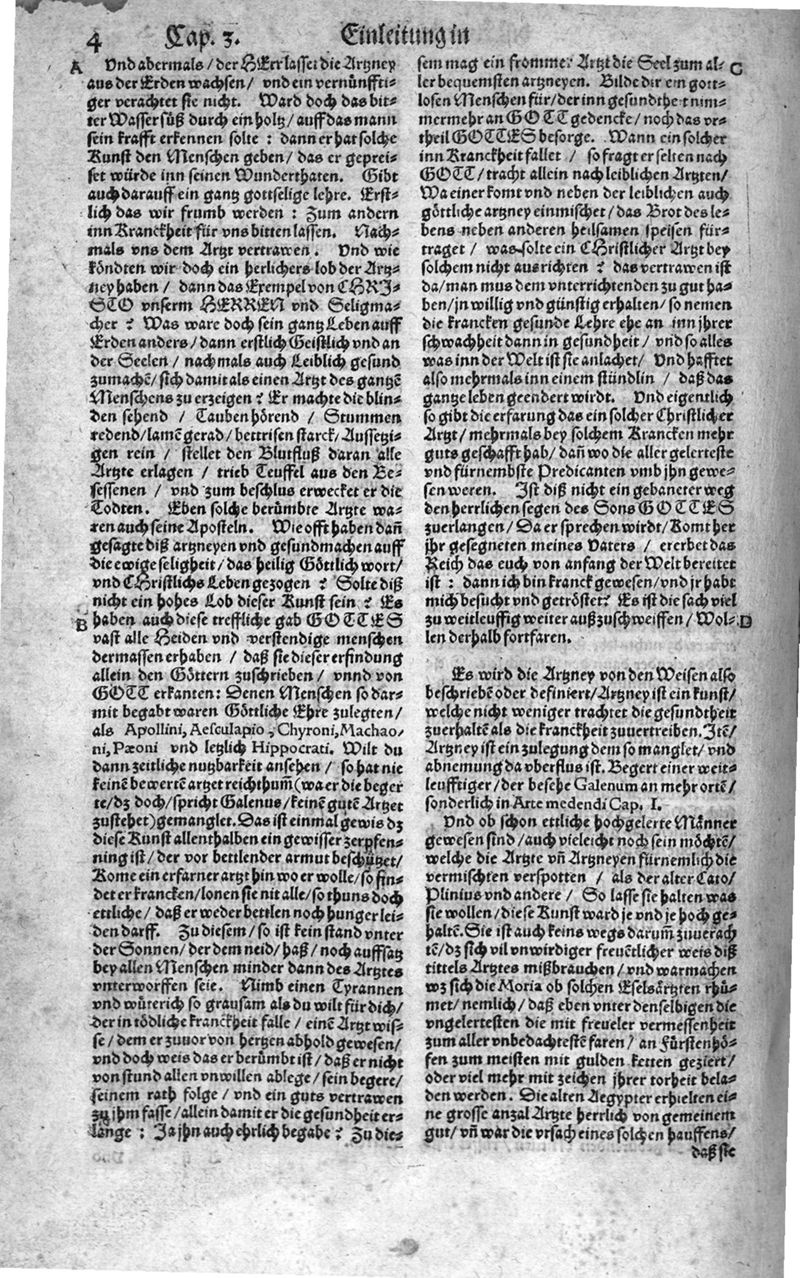 4 Cap. 3. Einleitung in
A Vnd abermals / der HErr lasset die Artzney
aus der Erden wachsen / vnd ein vernünffti-
ger verachtet sie nicht. Ward doch das bit-
ter Wasser süß durch ein holtz / auff das mann
sein krafft erkennen solte : dann er hat solche
Kunst den Menschen geben / das er geprei-
set würde inn seinen Wunderthaten. Gibt
auch darauff ein gantz gottselige lehre. Erst-
lich das wir frumb werden : Zum andern
inn Kranckheit für vns bitten lassen. Nach-
mals vns dem Artzt vertrawen. Vnd wie
köndten wir doch ein herlichers lob der Artz-
ney haben / dann das Exempel von CHRI-
STO vnserm HERREN vnd Seligma-
cher ? Was ware doch sein gantz Leben auff
Erden anders / dann erstlich Geistlich vnd an
der Seelen / nachmals auch Leiblich gesund
zumachē / sich damit als einen Artzt des gantzē
Menschens zu erzeigen ? Er machte die blin-
den sehend / Tauben hörend / Stummen
redend / lamē gerad / bettrisen starck / Aussetzi-
gen rein / stellet den Blutfluß daran alle
Artzte erlagen / trieb Teuffel aus den Be-
sessenen / vnd zum beschlus erwecket er die
Todten. Eben solche berümbte Artzte wa-
ren auch seine Aposteln. Wie offt haben dañ
gesagte diß artzneyen vnd gesundmachen auff
die ewige seligheit / das heilig Göttlich wort /
vnd CHristlichs Leben gezogen ? Solte diß
nicht ein hohes Lob dieser Kunst sein ? Es
B haben auch diese treffliche gab GOTTES
vast alle Heiden vnd verstendige menschen
dermassen erhaben / daß sie dieser erfindung
allein den Göttern zuschrieben / vnnd von
GOTT erkanten : Denen Menschen so dar-
mit begabt waren Göttliche Ehre zulegten /
als Apollini, Aesculapio, Chyroni, Machao-
ni, Pæoni vnd letzlich Hippocrati. Wilt du
dann zeitliche nutzbarkeit ansehen / so hat nie
keinē bewertē artzet reichthum̄ (wa er die beger
te / dz doch / spricht Galenus / keinē gutē Artzet
zustehet) gemanglet. Das ist einmal gewis dz
diese Kunst allenthalben ein gewisser zerpfen-
ning ist / der vor bettlender armut beschützet /
Kome ein erfarner artzt hin wo er wolle / so fin-
det er krancken / lonen sie nit alle / so thuns doch
ettliche / daß er weder bettlen noch hunger lei-
den darff. Zu diesem / so ist kein stand vnter
der Sonnen / der dem neid / haß / noch auffsatz
bey allen Menschen minder dann des Artztes
vnterworffen seie. Nimb einen Tyrannen
vnd wüterich so grausam als du wilt für dich /
der in tödliche kranckheit falle / einē Artzt wis-
se / dem er zuuor von hertzen abhold gewesen /
vnd doch weis das er berümbt ist / daß er nicht
von stund allen vnwillen ablege / sein begere /
seinem rath folge / vnd ein guts vertrawen
zu jhm fasse / allein damit er die gesundheit er-
lange : Ja jhn auch ehrlich begabe ? Zu die-
sem mag ein frommer Artzt die Seel zum al- C
ler bequemsten artzneyen. Bilde dir ein gott-
losen Menschen für / der inn gesundtheit nim-
mermehr an GOTT gedencke / noch das vr-
theil GOTTES besorge. Wann ein solcher
inn Kranckheit fallet / so fragt er selten nach
GOTT / tracht allein nach leiblichen Artzten /
Wa einer komt vnd neben der leiblichen auch
göttliche artzney einmischet / das Brot des le-
bens neben anderen heilsamen speisen für-
traget / was solte ein CHristlicher Artzt bey
solchem nicht ausrichten ? das vertrawen ist
da / man mus dem vnterrichtenden zu gut ha-
ben / jn willig vnd günstig erhalten / so nemen
die krancken gesunde Lehre ehe an inn jhrer
schwachheit dann in gesundheit / vnd so alles
was inn der Welt ist sie anlachet / Vnd hafftet
also mehrmals inn einem stündlin / daß das
gantze leben geendert wirdt. Vnd eigentlich
so gibt die erfarung das ein solcher Christlicher
Artzt / mehrmals bey solchem Krancken mehr
guts geschafft hab / dañ wo die aller gelerteste
vnd fürnembste Predicanten vmb jhn gewe-
sen weren. Ist diß nicht ein gebaneter weg
den herrlichen segen des Sons GOTTES
zuerlangen / Da er sprechen wirdt / Komt her
jhr gesegneten meines Vaters / ererbet das
Reich das euch von anfang der Welt bereitet
ist : dann ich bin kranck gewesen / vnd jr habt
mich besucht vnd getröstet ? Es ist die sach viel
zu weitleuffig weiter außzuschweiffen / Wol- D
len derhalb fortfaren.
Es wird die Artzney von den Weisen also
beschriebē oder definiert / Artzney ist ein kunst /
welche nicht weniger trachtet die gesundtheit
zuerhaltē als die kranckheit zuuertreiben. Itē /
Artzney ist ein zulegung dem so manglet / vnd
abnemung da vberflus ist. Begert einer weit-
leufftiger / der besehe Galenum an mehr ortē /
sonderlich in Arte medendi Cap. I.
Vnd ob schon ettliche hochgelerte Männer
gewesen sind / auch vieleicht noch sein möchtē /
welche die Artzte vñ Artzneyen fürnemlich die
vermischten verspotten / als der alter Cato /
Plinius vnd andere / So lasse sie halten was
sie wollen / diese Kunst ward je vnd je hoch ge-
haltē. Sie ist auch keins wegs darum̄ zuuerach
tē / dz sich vil vnwirdiger freuētlicher weis diß
tittels Artztes mißbrauchen / vnd warmachen
wz sich die Moria ob solchen Eselsärtzten rhü-
met / nemlich / daß eben vnter denselbigen die
vngelertesten die mit freueler vermessenheit
zum aller vnbedachtestē faren / an Fürstenhö-
fen zum meisten mit gulden ketten geziert /
oder viel mehr mit zeichen jhrer torheit bela-
den werden. Die alten Aegypter erhielten ei-
ne grosse anzal Artzte herrlich von gemeinem
gut / vñ war die vrsach eines solchen hauffens /
daß sie